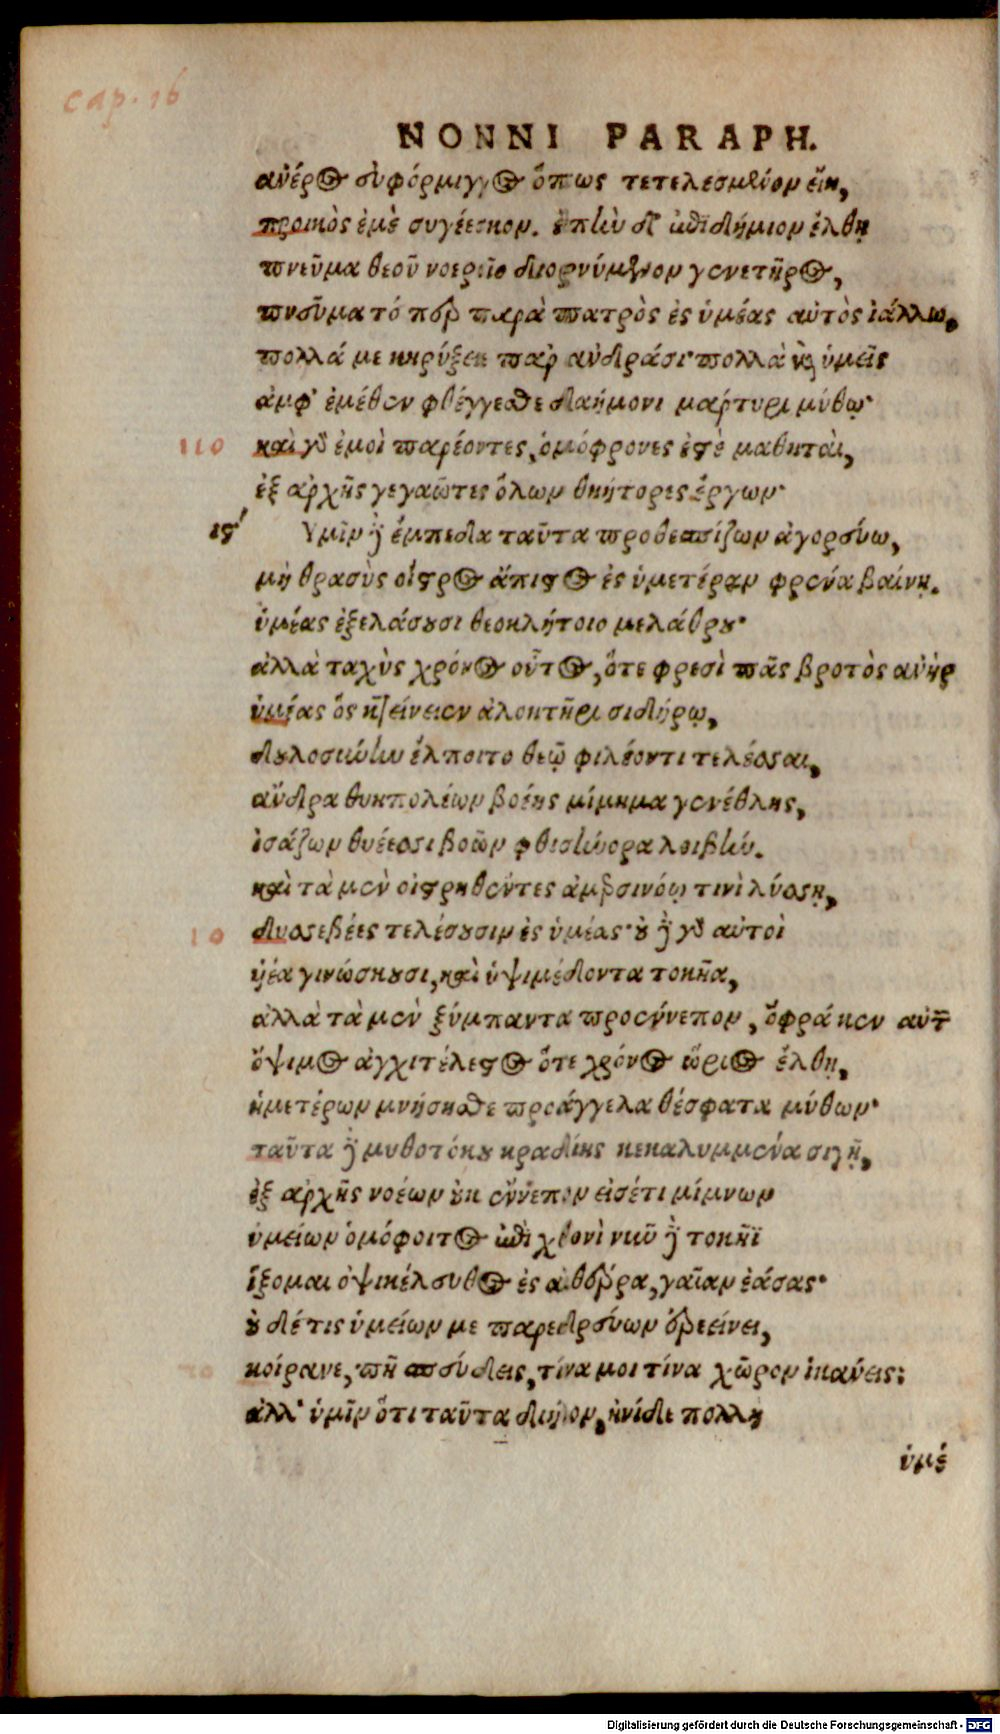 cap. 16
NONNI PARAPH.
ἀνέρος εὐφόρμιγγος ὅπως τετελεσμένον εἴη,
προικὸς ἐμὲ στυγέεσκον. ἐπὴν δ' ἐπιδήμιον ἔλθῃ
πνεῦμα θεοῦ νοεροῖο διορνύμενον γενετῆρος,
πνεῦμα τό περ παρὰ πατρὸς ἐς ὑμέας αὐτὸς ἰάλλω,
πολλά με κηρύξει παρ' ἀνδράσι· πολλὰ καὶ ὑμεῖς
ἀμφ' ἐμέθεν φθέγγεσθε δαήμονι μάρτυρι μύθῳ·
110 καὶ γὰρ ἐμοὶ παρέοντες, ὁμόφρονες ἐστὲ μαθηταὶ,
ἐξ ἀρχῆς γεγαῶτες ὅλων θηήτορες ἔργων·
ις' Υμῖν δ' ἔμπεδα ταῦτα προθεσπίζων ἀγορεύω,
μὴ θρασὺς οἶστρος ἄπιστος ἐς ὑμετέραν φρένα βαίνῃ.
ὑμέας ἐξελάσουσι θεοκλήτοιο μελάθρου·
ἀλλὰ ταχὺς χρόνος οὗτος, ὅτε φρεσὶ πᾶς βροτὸς ἀνὴρ
ὑμέας ὃς κτείνειεν ἀλοιητῆρι σιδήρῳ,
δουλοσύνην ἔλποιτο θεῷ φιλέοντι τελέσσαι,
ἄνδρα θυηπολέων βοέης μίμημα γενέθλης,
ἰσάζων θυέεσσι βοῶν φθισήνορα λοιβήν.
καὶ τὰ μὲν οἰστρηθέντες ἀμερσινόῳ τινὶ λύσσῃ,
10 δυσσεβέες τελέσουσιν ἐς ὑμέας· οὐ δὲ γὰρ αὐτοὶ
υἱέα γινώσκουσι, καὶ ὑψιμέδοντα τοκῆα,
ἀλλὰ τὰ μὲν ξύμπαντα προσέννεπον, ὄφρά κεν αὐτῶν
ὄψιμος ἀγχιτέλεστος ὅτε χρόνος ὥριος ἔλθῃ,
ἡμετέρων μνήσησθε προάγγελα θέσφατα μύθων·
ταῦτα δὲ μυθοτόκου κραδίης κεκαλυμμένα σιγῇ,
ἐξ ἀρχῆς νοέων οὐκ ἔννεπον εἰσέτι μίμνων
ὑμείων ὁμόφοιτος ἐπὶ χθονὶ νυῦ δὲ τοκῆϊ
ἵξομαι ὀψικέλευθος ἐς αἰθέρα, γαῖαν ἐάσας·
οὐ δέ τις ὑμείων με παρεδρεύων ἐρεείνει,
20 κοίρανε, πῆ σπεύδεις, τίνα μοι τίνα χῶρον ἱκάνεις;
ἀλλ' ὑμῖν ὅτι ταῦτα διήϊον, ἠνίδε πολλὴ
ὑμέ
Digitalisierung gefördert durch die Deutsche Forschungsgemeinschaft - DFG